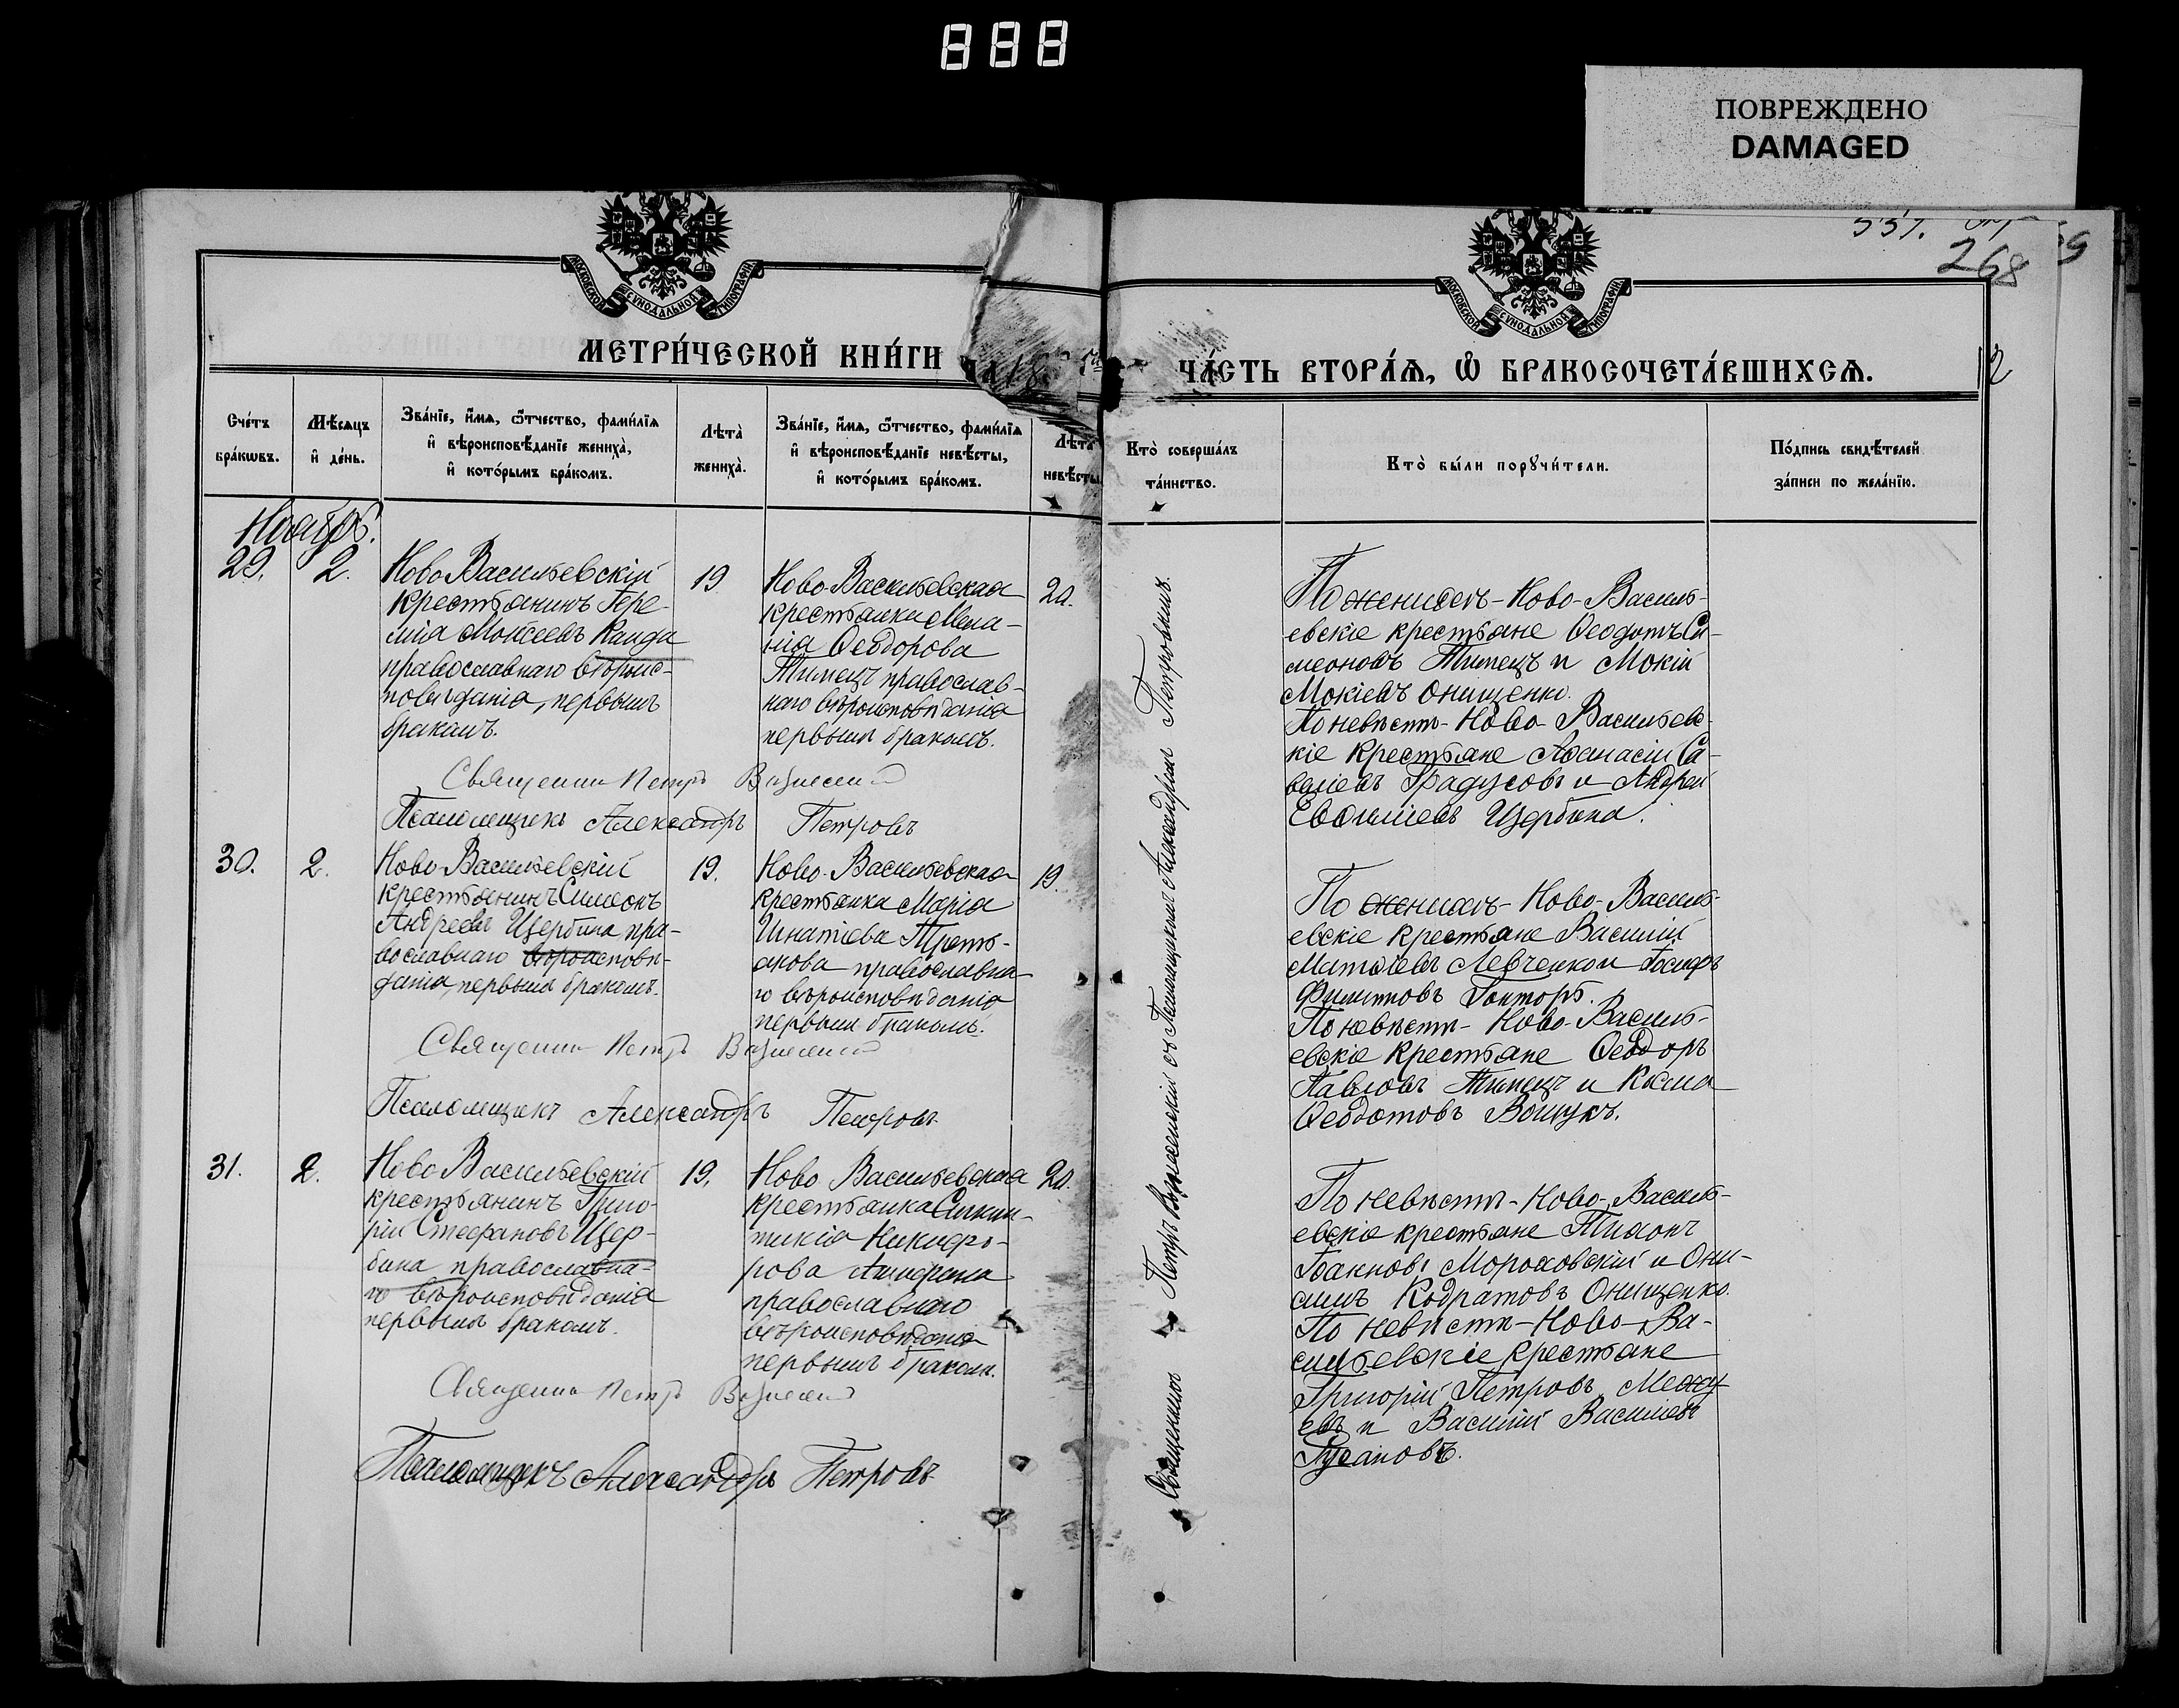 888
ПОВРЕЖДЕНО
DAMAGED
268
МОСКОВСКОЙ СѴНОДАЛЬНОЙ ТИПОГРАФІИ
МОСКОВСКОЙ СѴНОДАЛЬНОЙ ТИПОГРАФІИ
МЕТРИ́ЧЕСКОЙ КНИ́ГИ
ЧА́СТЬ ВТОРА́Ѧ, Ѽ БРАКОСОЧЕТА́ВШИХСѦ.
Сче́тъ бра́кѡвъ.
Мѣ́сяцъ и҆ де́нь.
Зва́нїе, и҆́мѧ, ѻ҆́тчество, фами́лїѧ
и҆ вѣроисповѣ́данїе жениха̀,
и҆ кото́рымъ бра́комъ.
Лѣта̀ жениха̀.
Зва́нїе, и҆́мѧ, ѻ҆́тчество, фами́лїѧ
и҆ вѣроисповѣ́данїе невѣ́сты,
и҆ кото́рымъ бра́комъ.
Лѣта̀ невѣ́сты
Кто̀ соверша́лъ та́инство.
Кто̀ бы́ли порꙋчи́тели.
По́дпись свидѣ́телей за́писи по жела́нїю.
Ноябрь.
29.
2.
Ново Васильевскій
крестьянинъ Іере-
мія Моисеевъ Канда
православнаго вѣроис-
повѣданія, первымъ
бракомъ.
19
Ново-Васильевская
крестьянка Мела-
нія Ѳеодорова
Типецъ православ-
наго вѣроисповѣданія
первымъ бракомъ.
20.
Священникъ Петръ Вознесенскій съ Псаломщикомъ Александромъ Петровымъ.
По женихѣ-Ново-Василь-
евскіе крестьяне Ѳеодотъ Си-
меоновъ Типецъ и Мокій
Мокіевъ Онищенко.
По невѣстѣ-Ново-Васильевс-
кіе крестьяне Аѳанасій Са-
веліевъ Градусовъ и Андрей
Евѳиміевъ Щербина.
Священникъ Петръ Вознесенскій
Псаломщикъ Александръ Петровъ
30.
2.
Ново-Васильевскій
крестьянинъ Симеонъ
Андреевъ Щербина пра-
вославнаго вѣроисповѣ-
данія, первымъ бракомъ.
19.
Ново-Васильевская
крестьянка Марія
Игнатіева Треть-
акова православна-
го вѣроисповѣданія
первымъ бракомъ.
19.
По женихѣ-Ново-Василь-
евскіе крестьяне Василій
Матѳіевъ Левченко и Іосифъ
Филипповъ
По невѣстѣ-Ново-Василь-
евскіе крестьяне Ѳеодоръ
Павловъ Типецъ и Косма
Ѳеодотовъ
Священникъ Петръ Вознесенскій
Псаломщикъ Александръ Петровъ
31.
2.
Ново Васильевскій
крестьянинъ Григо-
рій Стефановъ Щер-
бина православна-
го вѣроисповѣданія
первымъ бракомъ.
19.
Ново Васильевская
крестьянка Синкли-
тикія Никифо-
рова
православнаго
вѣроисповѣданія
первымъ бракомъ.
20.
По невѣстѣ-Ново-Василь-
евскіе крестьяне Тихонъ
Іоанновъ Мороховскій и Они-
симъ Кодратовъ Онищенко.
По невѣстѣ-Ново-Ва-
сильевскіе крестьяне
Григорій Петровъ Межу-
евъ и Василій Васильевъ
Русановъ.
Священникъ Петръ Вознесенскій
Псаломщикъ Александръ Петровъ